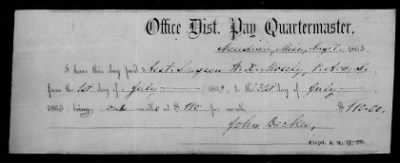 Office Dist. Pay Quartermaster,
Aug 1, 1863.
I have this day paid Asst. Surgeon W. X. Mosely, P. A. C. S.
from the 1st day of July 1863, to the 31st day of July
1863 being one month at $110 per month $110.00.
John Decker,
Capt. & A. Q. M.